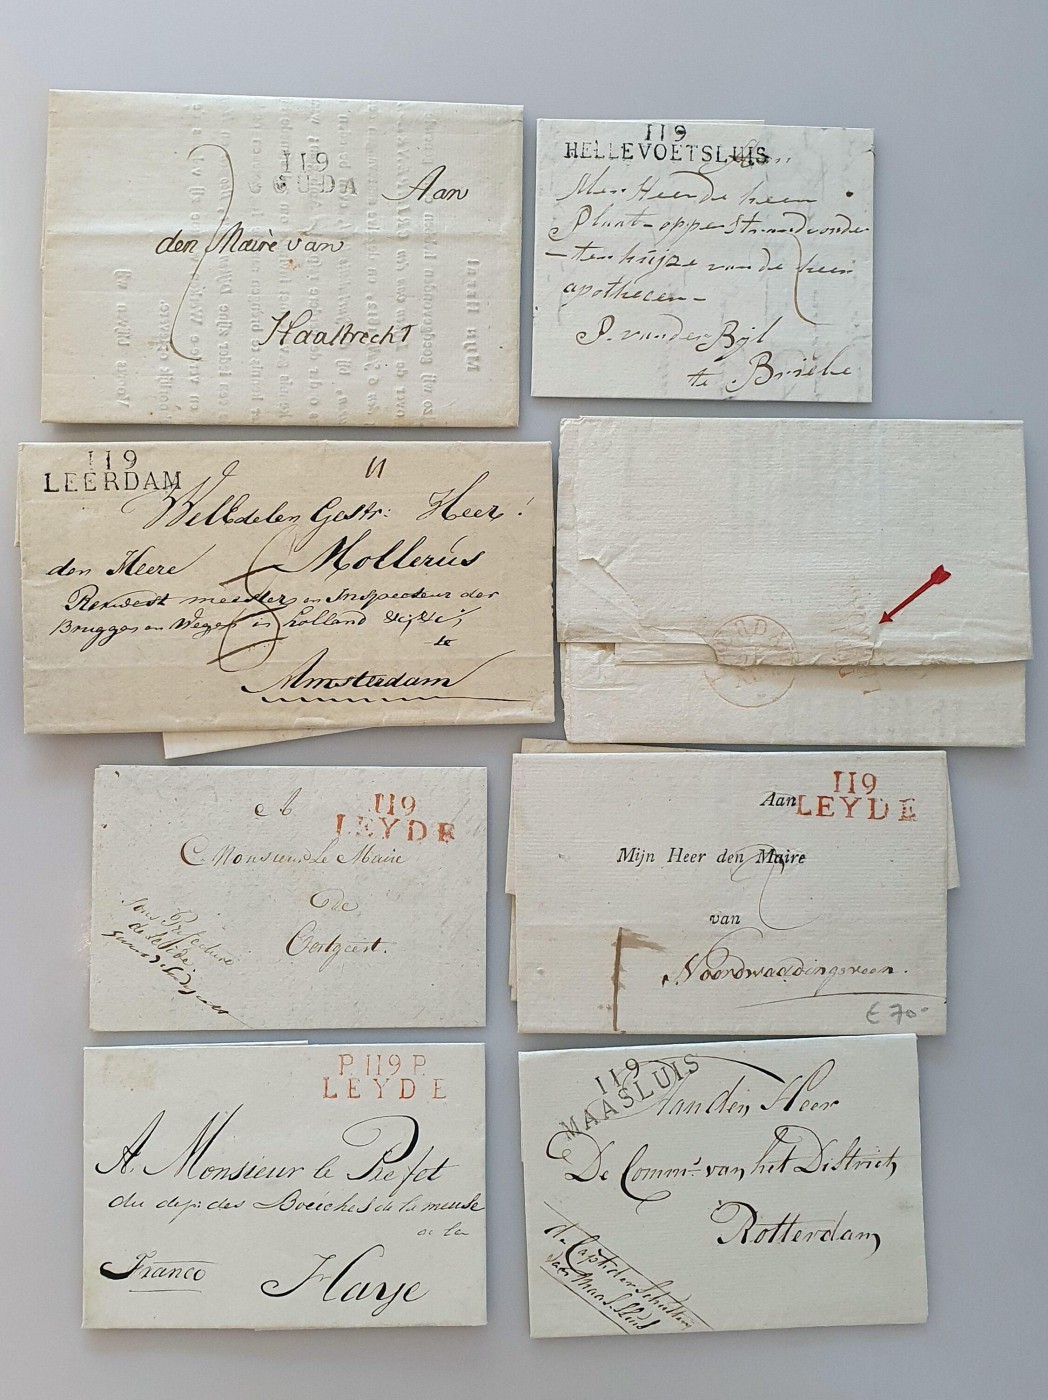 119
GUDA
Aan
den Maire van
Haastrecht
119
HELLEVOETSLUIS
Aan
Men Heer de heer
Plaat-opper Strandvonder
ten huijze van de heer
apothecer-
P. van der Bijl
te Briele
119
LEERDAM
WelEdelen Gestr: Heer!
den Heere Mollerus
meester en Inspecteur der
Bruggen en Wegen in Holland &c,&c,
te
Amsterdam
119
LEYDE
Monsieur Le Maire
de
Oestgeest.
Sous Préfecture
de Leide.
119
LEYDE
Aan
Mijn Heer den Maire
van
Noordwaddingsveen.
€ 70-
P.119P.
LEYDE
A Monsieur le Prefet
du dep: des Bouches de la meuse
a la
Franco
Haye
119
MAASLUIS
Aan den Heer
De Commr. van het District
Rotterdam
de Captn der Schutterij
van Maas-Sluis